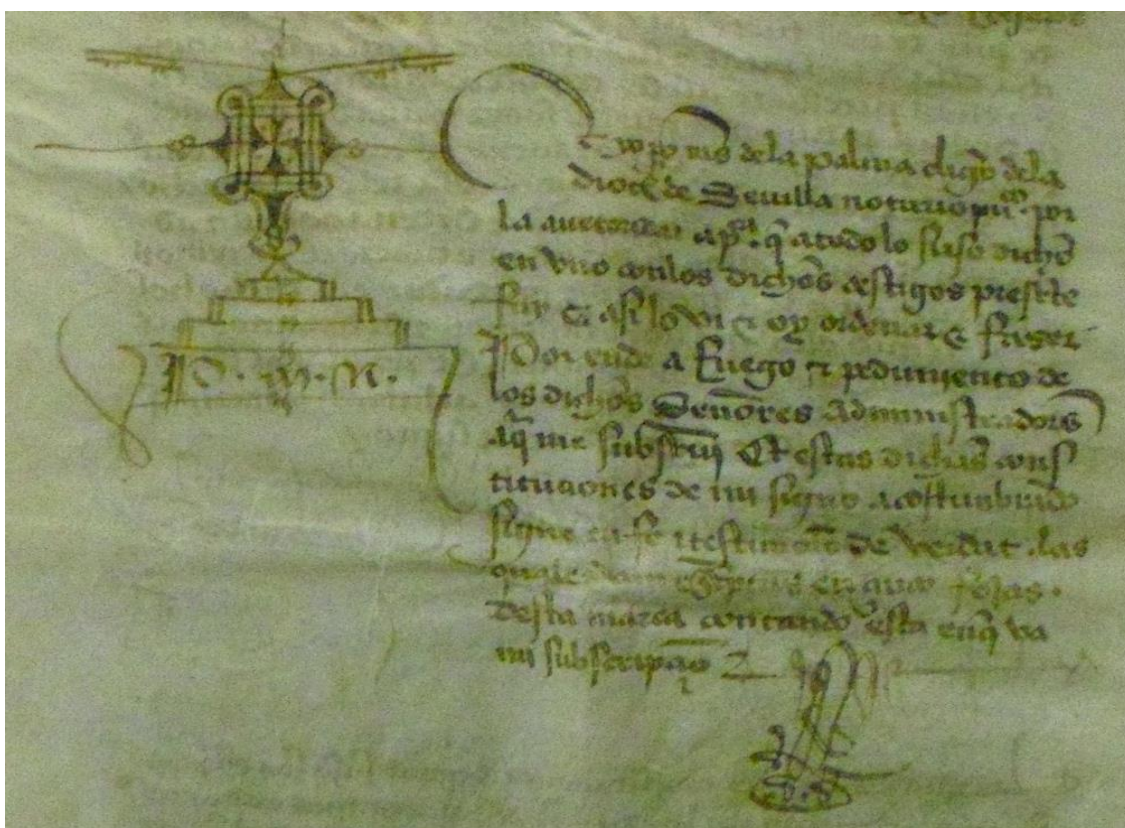 P · M · N ·
de la palma cligo dela
dioc̄ de Sevilla notario puco por
la auctoridat apca q̄ atodo lo suso dicho
en vno conlos dichos testigos presēte
fuy & asi lo vi & oy ordenar & faser
Por ende a Ruego & pedimiento de
los dichos Señores Administradors
aq̄ me subscriui Et estas dichas cons
tituciones de mi signo acostunbrado
signe en fe & testimonio de verdat las
quales van en fojas
desta marca contando esta enq̄ va
mi subscripcio